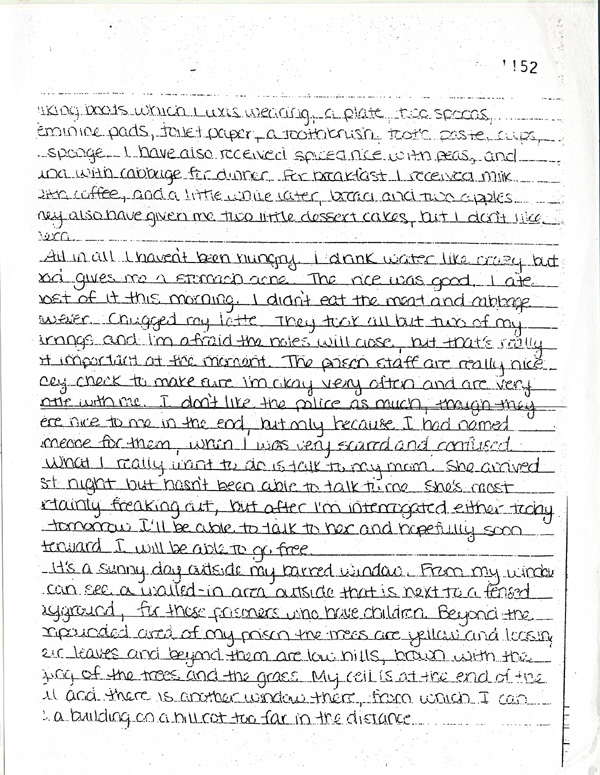 1152
iking boots which I was wearing, a plate, two spoons,
eminine pads, toilet paper, a toothbrush, tooth paste, cups,
sponge. I have also received spiced rice with peas, and
with cabbage for dinner. For breakfast I received milk
ith coffee, and a little while later, bread and two apples.
hey also have given me two little dessert cakes, but I don't like
hem.
All in all I haven't been hungry. I drink water like crazy but
gives me a stomach ache. The rice was good. I ate
ost of it this morning. I didn't eat the meat and cabbage
wever. Chugged my latte. They took all but two of my
rrings and I'm afraid the holes will close, but that's really
t important at the moment. The prison staff are really nice.
ey check to make sure I'm okay very often and are very
ntle with me. I don't like the police as much, though they
ere nice to me in the end, but only because I had named
meone for them, when I was very scared and confused.
What I really want to do is talk to my mom. She arrived
st night but hasn't been able to talk to me. She's most
rtainly freaking out, but after I'm interrogated either today
tomorrow I'll be able to talk to her and hopefully soon
terward I will be able to go free.
It's a sunny day outside my barred window. From my window
can see a walled-in area outside that is next to a fenced
ayground, for those prisoners who have children. Beyond the
mpounded area of my prison the trees are yellow and loosing
eir leaves and beyond them are low hills, brown with the
ing of the trees and the grass. My cell is at the end of the
ll and there is another window there, from which I can
a building on a hill not too far in the distance.